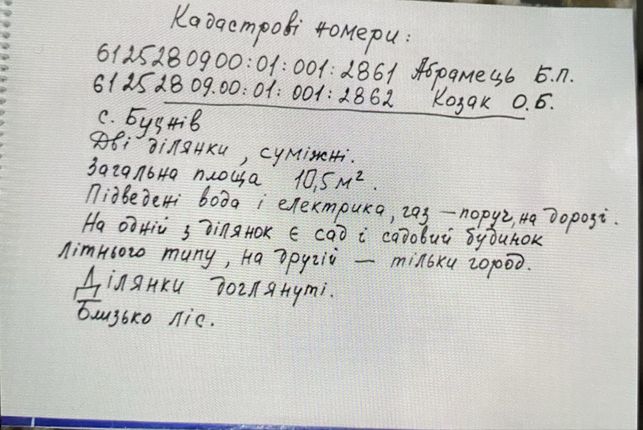 Кадастрові номери:
6125280900:01:001:2861 Абрамець Б.П.
61252809.00:01:001:2862 Козак О.Б.
с. Буцнів
Дві ділянки, суміжні.
Загальна площа 10,5 м².
Підведені вода і електрика, газ – поруч, на дорозі.
На одній з ділянок є сад і садовий будинок
літнього типу, на другій – тільки город.
Ділянки доглянуті.
Близько ліс.